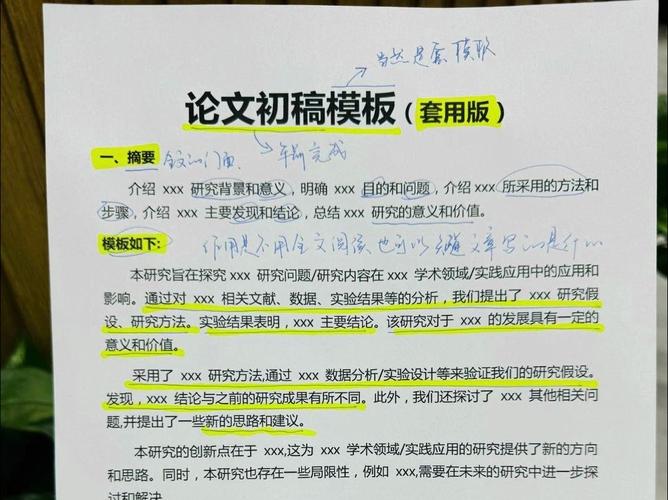 当然是套模板
论文初稿模板（套用版）
年前完成
一、摘要 全文的门面
介绍 xxx 研究背景和意义，明确 xxx 目的和问题，介绍 xxx 所采用的方法和
步骤，介绍 xxx 主要发现和结论，总结 xxx 研究的意义和价值。
模板如下： 作用是不用全文阅读也可以知道文章写的是什么
本研究旨在探究 xxx 研究问题/研究内容在 xxx 学术领域/实践应用中的应用和
影响。通过对 xxx 相关文献、数据、实验结果等的分析，我们提出了 xxx 研究假
设、研究方法。实验结果表明，xxx 主要结论。该研究对于 xxx 的发展具有一定的
意义和价值。
采用了 xxx 研究方法,通过 xxx 数据分析/实验设计等来验证我们的研究假设。
发现，xxx 结论与之前的研究成果有所不同。此外，我们还探讨了 xxx 其他相关问
题,并提出了一些新的思路和建议。
本研究的创新点在于 xxx,这为 xxx 学术领域/实践应用的研究提供了新的方向
和思路。同时，本研究也存在一些局限性，例如 xxx,需要在未来的研究中进一步探
讨和解决